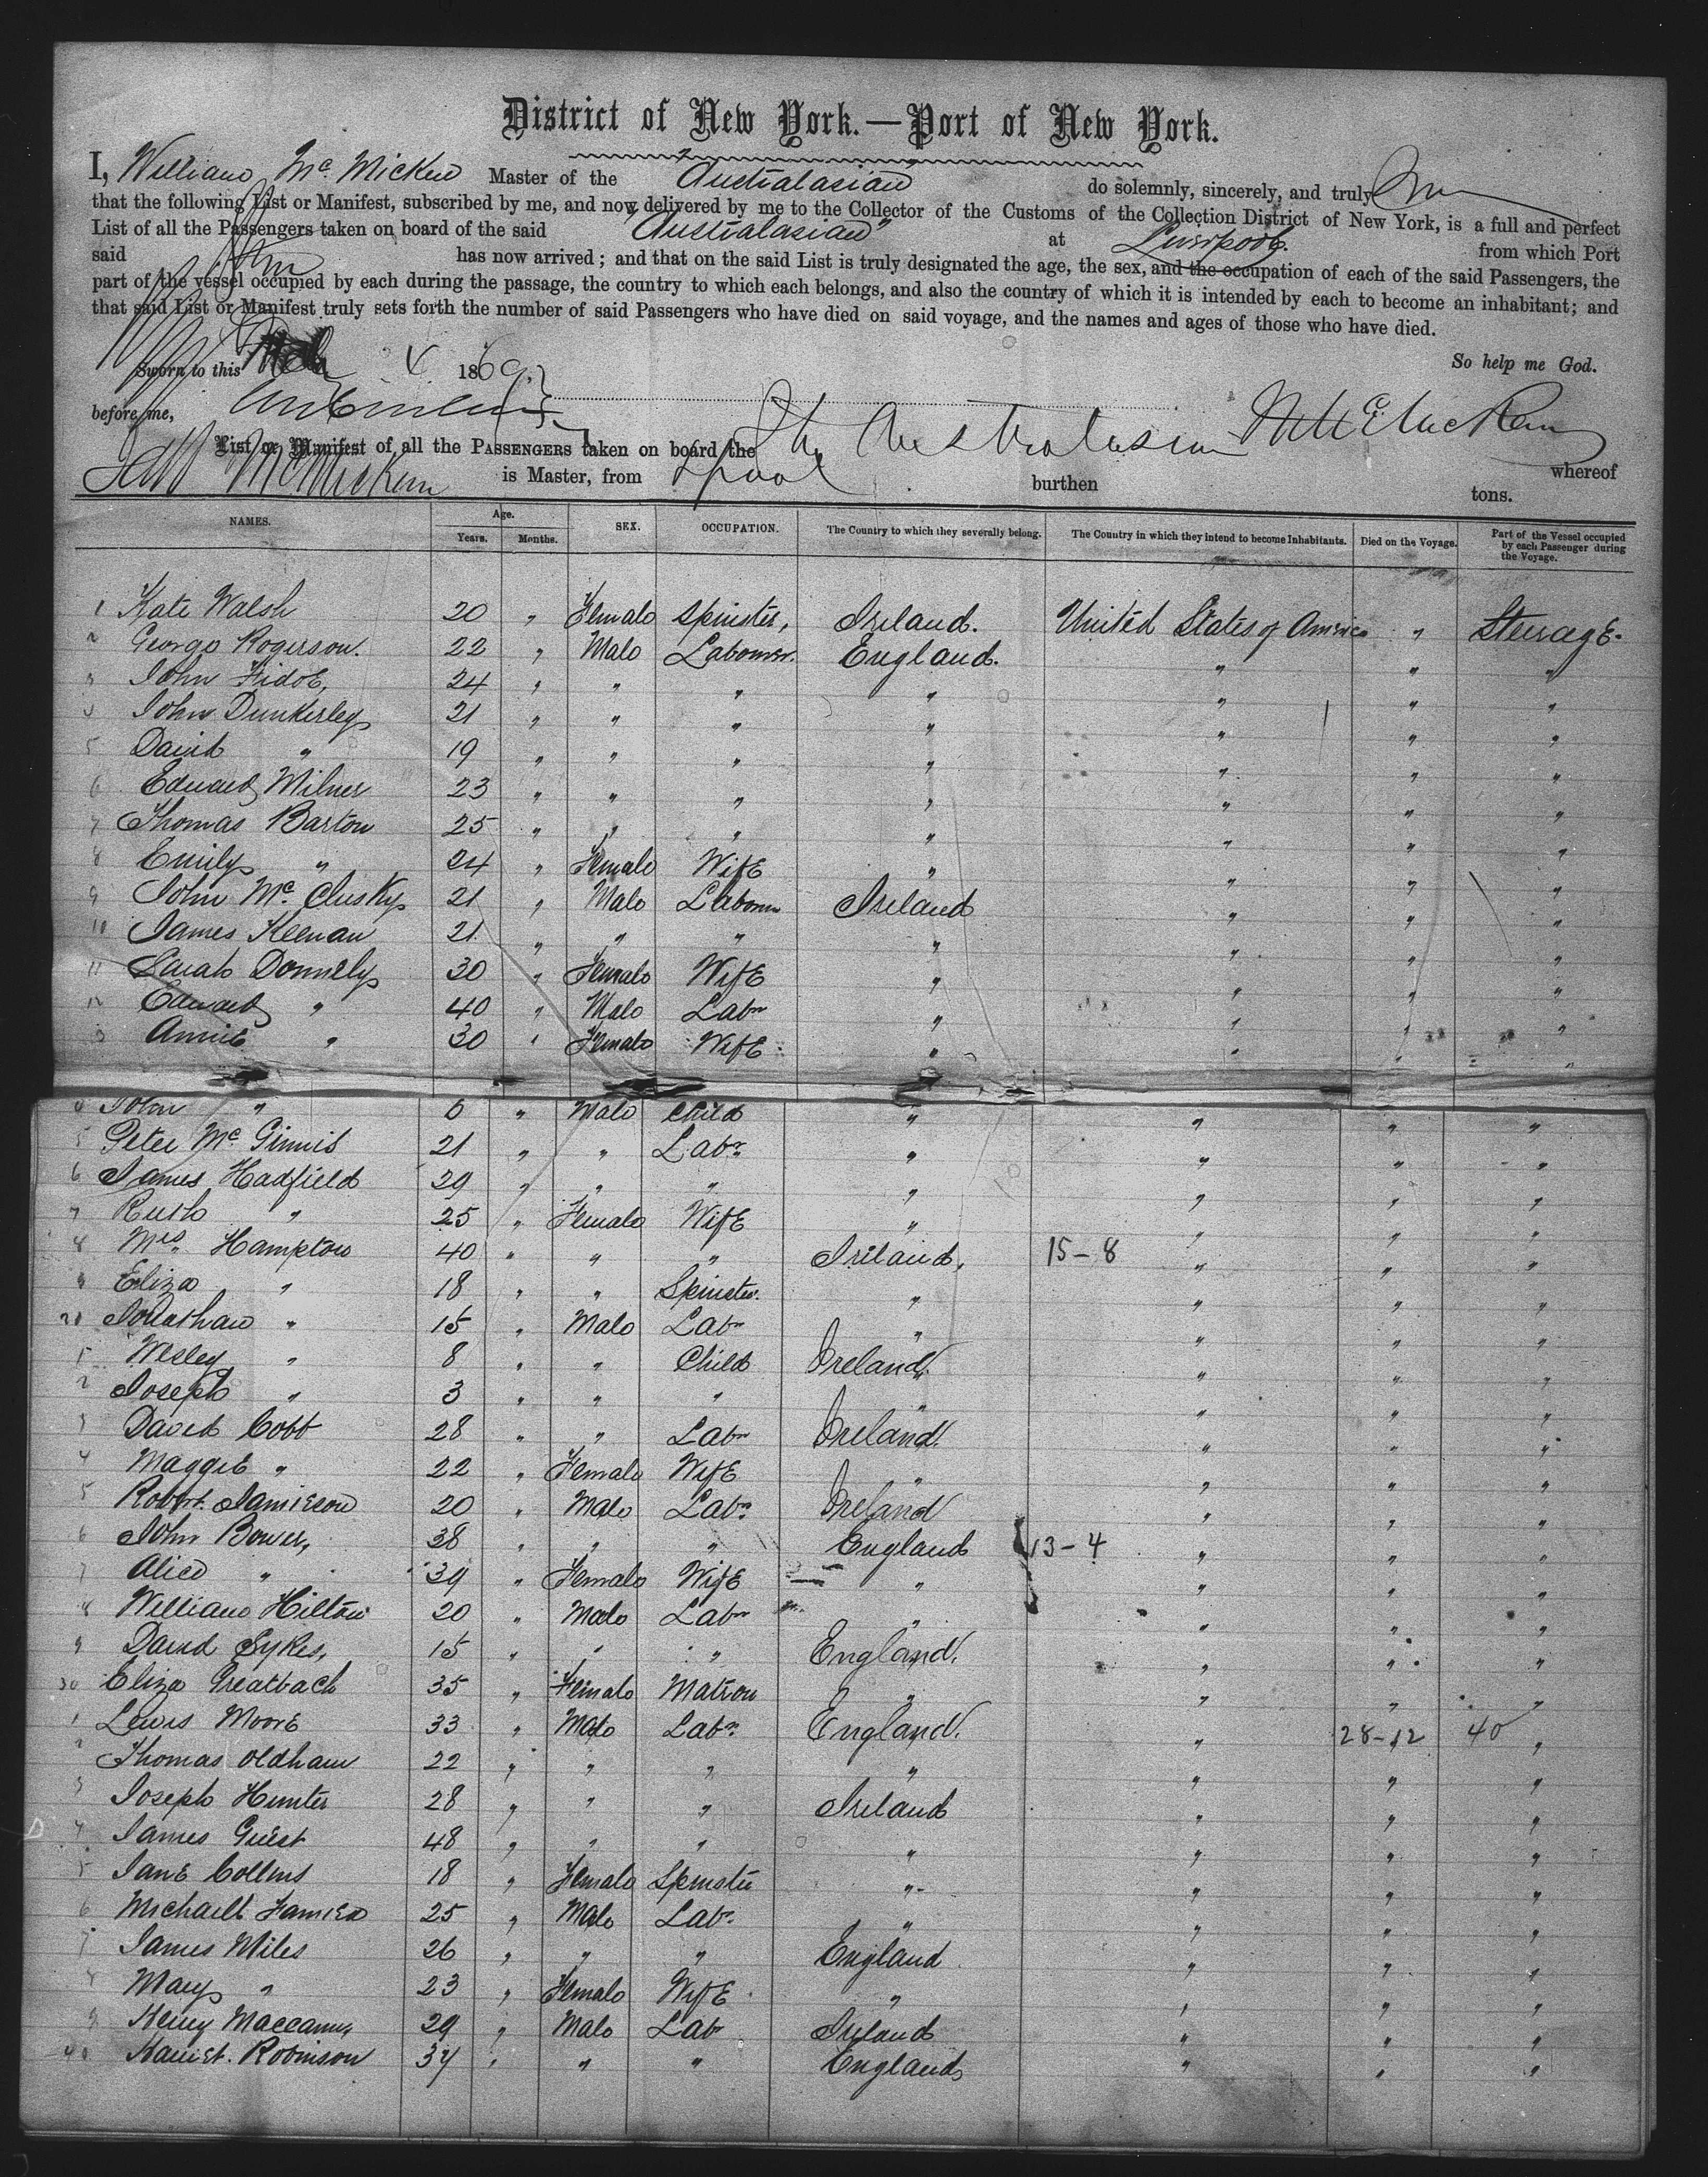 District of New York.—Port of New York.
I, William Mc Micken Master of the "Australasian" do solemnly, sincerely, and truly
that the following List or Manifest, subscribed by me, and now delivered by me to the Collector of the Customs of the Collection District of New York, is a full and perfect
List of all the Passengers taken on board of the said "Australasian" at Liverpool. from which Port
said has now arrived; and that on the said List is truly designated the age, the sex, and the occupation of each of the said Passengers, the
part of the vessel occupied by each during the passage, the country to which each belongs, and also the country of which it is intended by each to become an inhabitant; and
that said List or Manifest truly sets forth the number of said Passengers who have died on said voyage, and the names and ages of those who have died.
So help me God.
Sworn to this 4 1869.
before me,
List or Manifest of all the PASSENGERS taken on board the Str Australasian whereof
McMicken is Master, from Lpool burthen tons.
NAMES. Age. Years. Months. SEX. OCCUPATION. The Country to which they severally belong. The Country in which they intend to become Inhabitants. Died on the Voyage. Part of the Vessel occupied by each Passenger during the Voyage.
1 Kate Walsh 20 " Female Spinster, Ireland. United States of America " Steerage.
2 George Rogerson. 22 " Male Labourer. England. " " "
3 John Fidoe, 24 " " " " " " "
4 John Dunkerley 21 " " " " " " "
5 David " 19 " " " " " " "
6 Edward Milner 23 " " " " " " "
7 Thomas Barton 25 " " " " " " "
8 Emily " 24 " Female Wife " " " "
9 John Mc Clusky 21 " Male Labourer Ireland " " "
10 James Keenan 21 " " " " " " "
11 Sarah Donnelly 30 " Female Wife " " " "
12 Edward " 40 " Male Labr " " " "
3 Annie " 30 " Female Wife " " " "
4 John " 6 " Male Child " " " "
5 Peter Mc Ginnis 21 " " Labr " " " "
6 James Hadfield 29 " " " " " " "
7 Ruth " 25 " Female Wife " " " "
8 Mrs Hampton 40 " " " Ireland. 15-8 " " "
9 Eliza " 18 " " Spinster. " " " "
20 Jonathan " 15 " Male Labr " " " "
1 Wesley " 8 " " Child Ireland. " " "
2 Joseph " 3 " " " " " " "
3 David Cobb 28 " " Labr Ireland. " " "
4 Maggie " 22 " Female Wife " " " "
5 Robert Jamieson 20 " Male Labr Ireland " " "
6 John Bower, 38 " " " England 13-4 " " "
7 Alice " 39 " Female Wife " " " "
8 William Hilton 20 " Male Labr " " " "
9 David Sykes, 15 " " " England. " " "
30 Eliza Greatbach 35 " Female Matron " " " "
1 Lewis Moore 33 " Male Labr England. " 28-12 40 "
2 Thomas Oldham 22 " " " " " " "
3 Joseph Hunter 28 " " " Ireland " " "
4 James Guest 48 " " " " " " "
5 Jane Collins 18 " Female Spinster " " " "
6 Michaell 25 " Male Labr " " " "
7 James Miles 26 " " " England " " "
8 Mary " 23 " Female Wife " " " "
9 Henry Maccann, 29 " Male Lab Ireland " " "
40 Harriet. Robinson 34 " " " England " " "